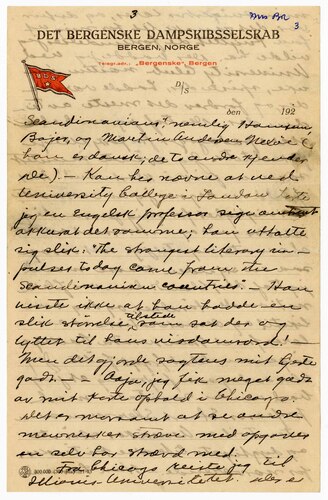 3
Mrs BR
3
DET BERGENSKE DAMPSKIBSSELSKAB
BERGEN, NORGE
Telegr.adr.: „Bergenske", Bergen
B.D.S.
D/S
den 192
Scandinavians" nemlig Hamsun,
Bojer, og Martin Andersen Nexø (
han er dansk; de to andre kjender
De). – Kan her nævne at ved
University College i London
jeg en Engelsk professor sige
at det samme; han uttalte
sig slik: "The strongest literary im-
pulses today come from the
Scandinavian countries". Han
visste ikke at han hadde en
slik størrelse tilstede som sat der og
lyttet til hans visdomsord!
Men det gjorde sagtens mit hjerte
godt – – Ogja, jeg fik meget godt
av mit korte ophold i Chicago.
Det er morsomt at se andre
mennesker stræve med opgaver
en selv har strævd med.
Fra Chicago reiste jeg til
Illinois Universitetet